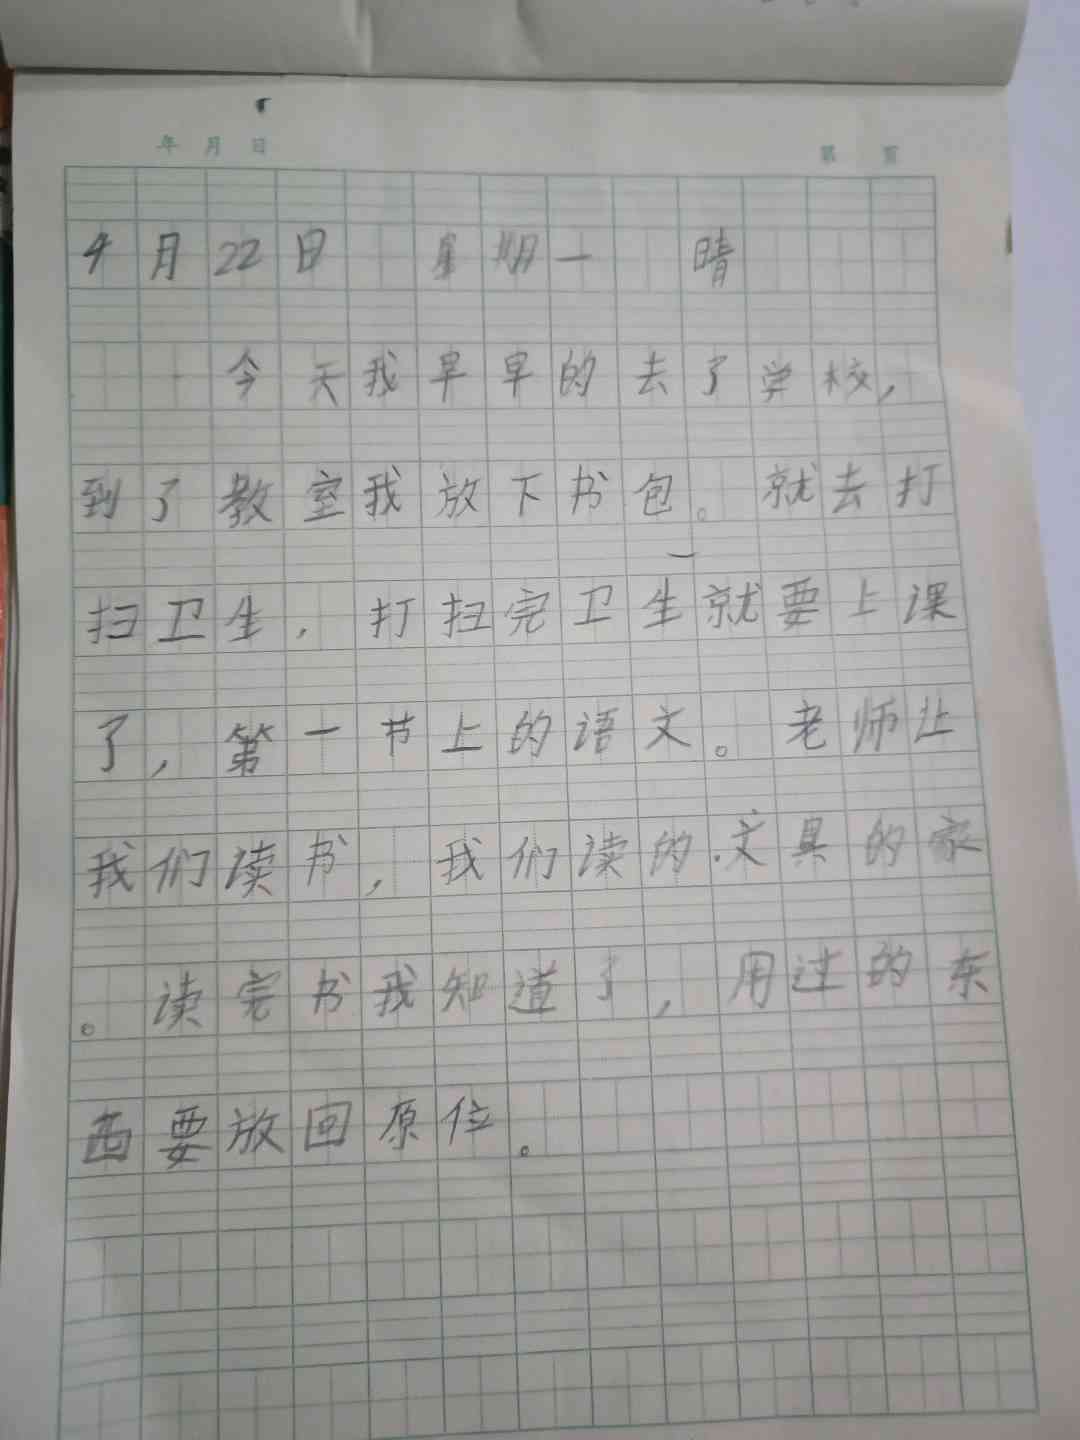 年 月 日
第 页
4月22日 星期一 晴
今天我早早的去了学校，
到了教室我放下书包。就去打
扫卫生，打扫完卫生就要上课
了，第一节上的语文。老师让
我们读书，我们读的.文具的家
。读完书我知道了，用过的东
西要放回原位。